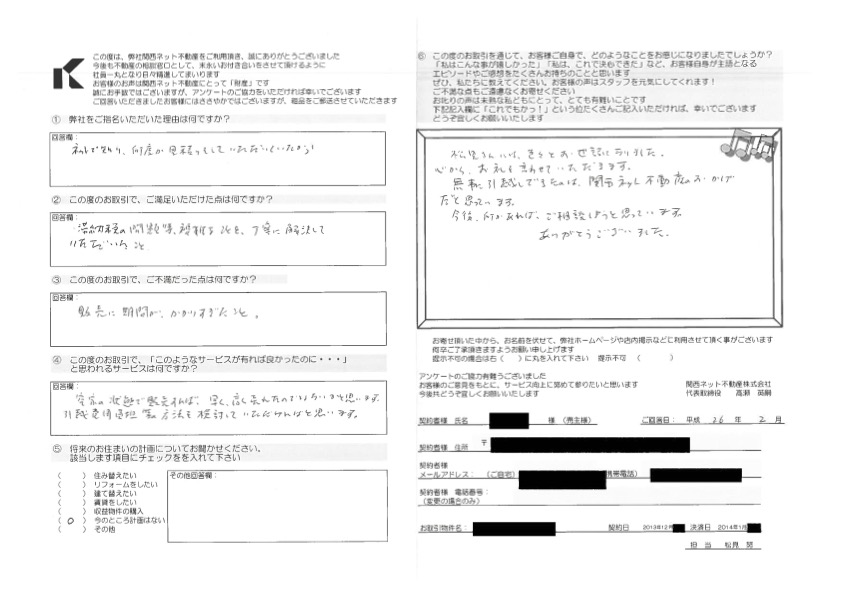 この度は、弊社関西ネット不動産をご利用頂き、誠にありがとうございました
今後も不動産の相談窓口として、末永いお付き合いをさせて頂けるように
社員一丸となり日々精進してまいります
お客様のお声は関西ネット不動産にとって「財産」です
誠にお手数ではございますが、アンケートのご協力をいただければ幸いでございます
ご回答いただきましたお客様にはささやかではございますが、粗品をご郵送させていただきます
① 弊社をご指名いただいた理由は何ですか?
回答欄:
ネットで知り、何度か見積もりして いただいていたから
② この度のお取引で、ご満足いただけた点は何ですか?
回答欄:
滞納税の問題等、複雑な事を、丁寧に解決して
いただいた 事
③ この度のお取引で、ご不満だった点は何ですか?
回答欄:
販売に期間が、かかりすぎた事。
④ この度のお取引で、「このようなサービスが有れば良かったのに・・・」
と思われるサービスは何ですか?
回答欄:
空家の状態で販売すれば、早く、高く売れたのではないかと思います
引越費用負担 等の方法を検討していただければと思います。
⑤ 将来のお住まいの計画についてお聞かせください。
該当します項目にチェックを入れて下さい
( ) 住み替えたい
( ) リフォームをしたい
( ) 建て替えたい
( ) 賃貸をしたい
( ) 収益物件の購入
( O ) 今のところ計画はない
( ) その他
その他回答欄:
⑥ この度のお取引を通じて、お客様ご自身で、どのようなことをお感じになりましたでしょうか?
「私はこんな事が嬉しかった」「私は、これで決心できた」など、お客様自身が主語となる
エピソードやご感想をたくさんお持ちのことと思います
ぜひ、私たちに教えてください。お客様の声はスタッフを元気にしてくれます!
ご不満な点もご遠慮なくお寄せください
お叱りの声は未熟な私どもにとって、とても有難いことです
下記記入欄に「これでもかっ!」という位たくさんご記入いただければ、幸いでございます
どうぞ宜しくお願いいたします
松見さんには、きっとお世話になりました。
心から、お礼を言わせていただきます。
無事に引越しできたのは、関西ネット不動産のおかげ
だと思っています。
今後、何かあれば、ご相談しようと思っています。
ありがとうございました。
お寄せ頂いた中から、お名前を伏せて、弊社ホームページや店内掲示などに利用させて頂く事がございます
何卒ご了承頂きますようお願い申し上げます
提示不可の場合は右( )に丸を入れて下さい 提示不可 ( )
アンケートのご協力有難うございました
お客様のご意見をもとに、サービス向上に努めて参りたいと思います
今後共どうぞ宜しくお願いいたします
関西ネット不動産株式会社
代表取締役 高瀬 英嗣
契約者様 氏名 様 (売主様) ご回答日: 平成 26 年 2 月
契約者様 住所 〒
契約者様
メールアドレス: (ご自宅) 携帯電話)
契約者様 電話番号:
(変更の場合のみ)
お取引物件名: 契約日 2013年12月 決済日 2014年1月
担 当 松見 努